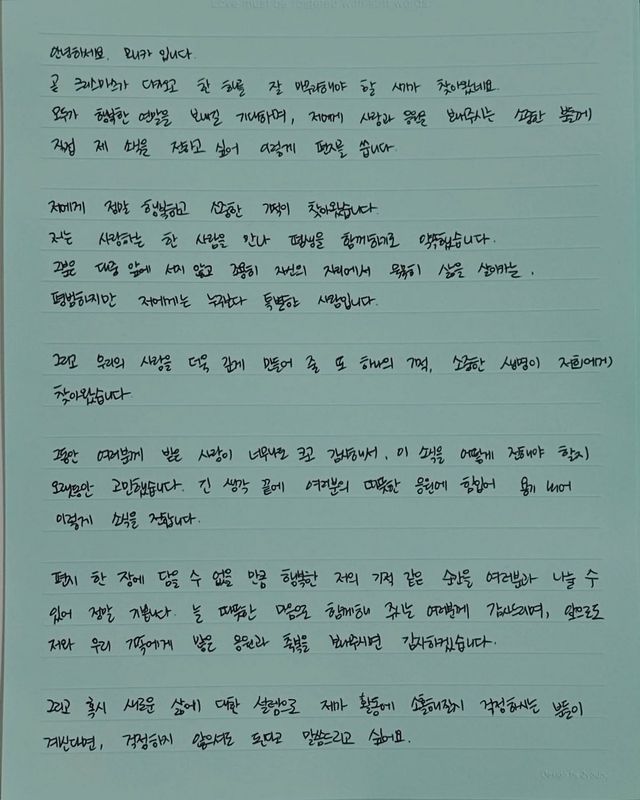 Love must be fostered with soft words.
안녕하세요. 모니카 입니다.
곧 크리스마스가 다가오고 한 해를 잘 마무리해야 할 시기가 찾아왔네요.
모두가 행복한 연말을 보내길 기대하며, 저에게 사랑과 응원을 보내주시는 소중한 분들께
직접 제 소식을 전하고 싶어 이렇게 편지를 씁니다.
저에게 정말 행복하고 소중한 기적이 찾아왔습니다.
저는 사랑하는 한 사람을 만나 평생을 함께하기로 약속했습니다.
그분은 대중 앞에 서지 않고 조용히 자신의 자리에서 묵묵히 삶을 살아가는,
평범하지만 저에게는 누구보다 특별한 사람입니다.
그리고 우리의 사랑을 더욱 깊게 만들어 줄 또 하나의 기적, 소중한 생명이 저희에게
찾아왔습니다.
그동안 여러분께 받은 사랑이 너무나도 크고 감사해서, 이 소식을 어떻게 전해야 할지
오랫동안 고민했습니다. 긴 생각 끝에 여러분의 따뜻한 응원에 힘입어 용기 내어
이렇게 소식을 전합니다.
편지 한 장에 담을 수 없을 만큼 행복한 저의 기적 같은 순간을 여러분과 나눌 수
있어 정말 기쁩니다. 늘 따뜻한 마음으로 함께해 주시는 여러분께 감사드리며, 앞으로도
저와 우리 가족에게 많은 응원과 축복을 보내주시면 감사하겠습니다.
그리고 혹시 새로운 삶에 대한 설렘으로 제가 활동에 소홀해질지 걱정하시는 분들이
계신다면, 걱정하지 않으셔도 된다고 말씀드리고 싶어요.